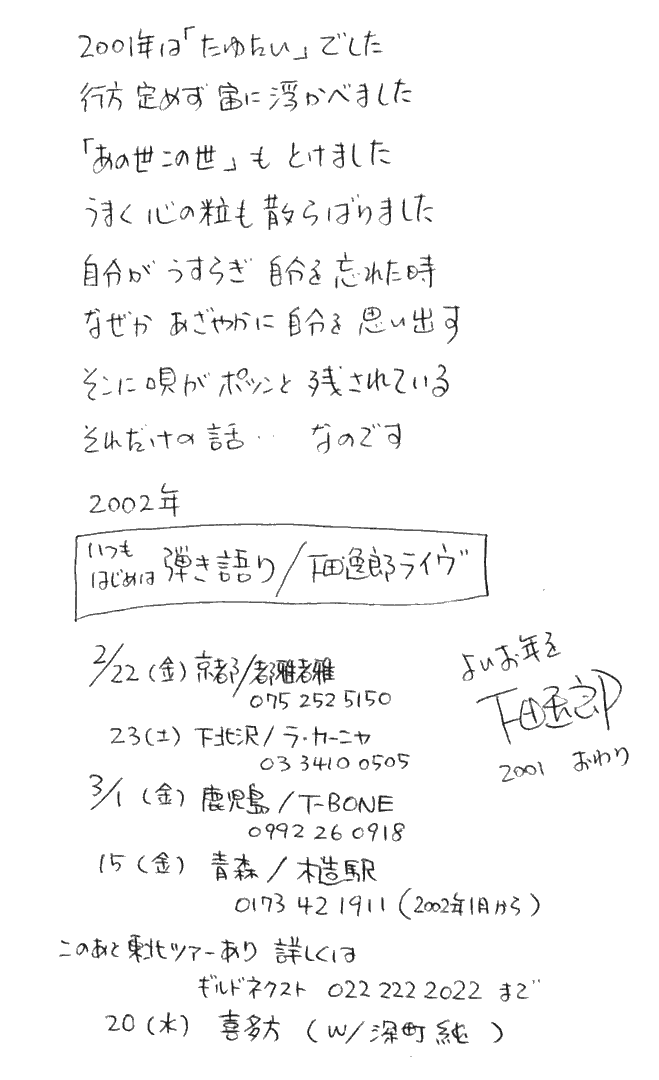 2001年は「たゆたい」でした
行方 定めず 宙に 浮かべました
「あの世この世」も とけました
うまく 心の粒も 散らばりました
自分が うすらぎ 自分を 忘れた時
なぜか あざやかに 自分を 思い出す
そこに 唄が ポツンと 残されている
それだけの 話‥ なのです
2002年
いつも
はじめは 弾き語り/下田逸郎ライヴ
2/22(金) 京都/都雅都雅
075 252 5150
23(土) 下北沢/ラ・カーニャ
03 3410 0505
3/1(金) 鹿児島/T-BONE
0992 26 0918
15(金) 青森/木造駅
0173 42 1911(2002年1月から)
このあと 東北ツアーあり 詳しくは
ギルドネクスト 022 222 2022 まで
20(水) 喜多方(W/深町純 )
よいお年を
下田逸郎
2001 おわり